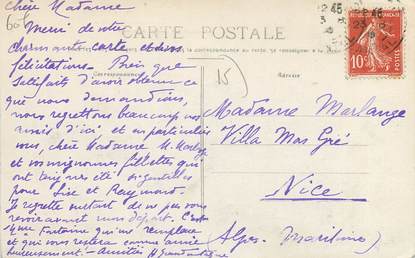 Chère Madame
Merci de votre
charmante carte et de vos
félicitations. Bien que
satisfaits d'avoir obtenu ce
que nous demandions,
nous regrettons beaucoup nos
amis d'ici et en particulier
vous, chère Madame, M.
et vos mignonnes fillettes qui
ont toujours été si gentilles
pour Lise et Raymond.
Je regrette surtout de ne pas vous
revoir avant mon départ. C'est
Mme Fontaine qui me remplace
et qui vous restera comme amie
heureusement. Amitiés
CARTE POSTALE
La correspondance au recto
Correspondance
Adresse
15
Madame Marlange
Villa Mos Gré
Nice
Alpes-Maritimes
10
POSTES